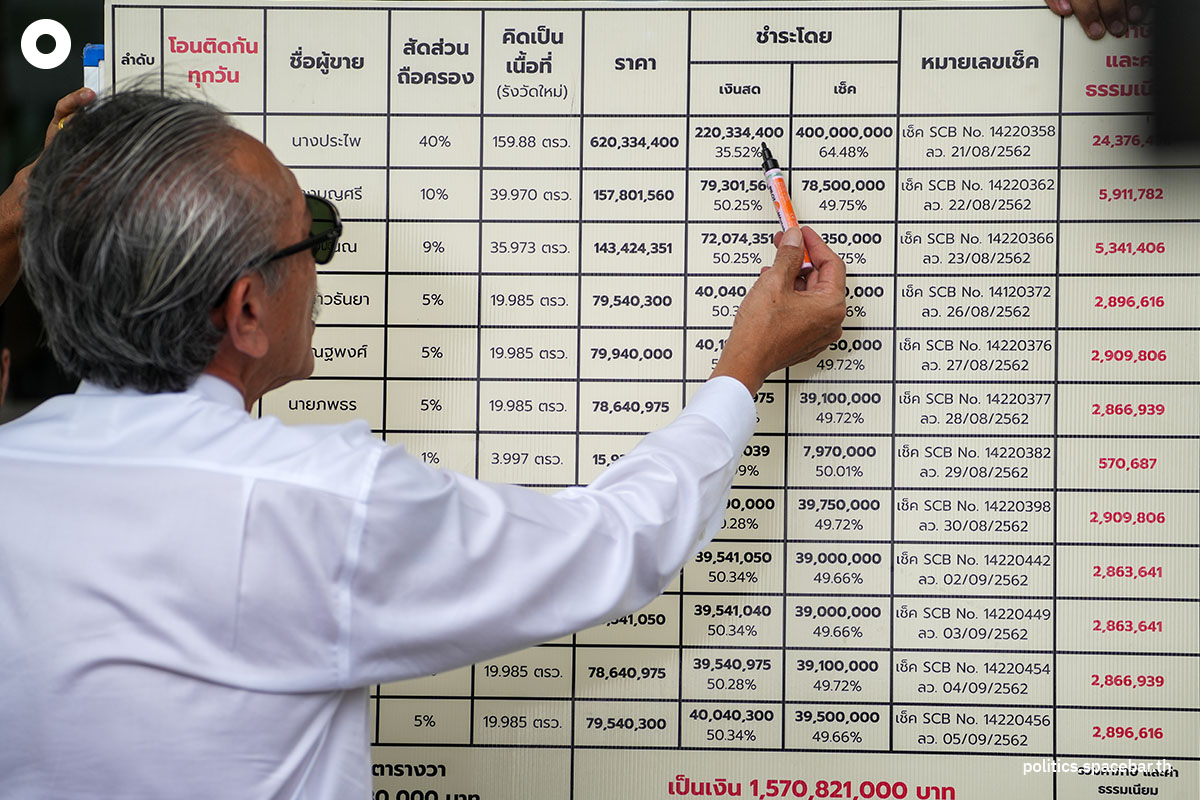 ลำดับ
โอนติดกัน
ทุกวัน
ชื่อผู้ขาย
สัดส่วน
ถือครอง
คิดเป็น
เนื้อที่
(รังวัดใหม่)
ราคา
ชำระโดย
เงินสด
เช็ค
หมายเลขเช็ค
และค่
ธรรมเนี
นางประไพ 40% 159.88 ตรว. 620,334,400 220,334,400 400,000,000 เช็ค SCB No. 14220358 24,376,4
35.52% 64.48% ลว. 21/08/2562
บุญศรี 10% 39.970 ตรว. 157,801,560 79,301,560 78,500,000 เช็ค SCB No. 14220362 5,911,782
50.25% 49.75% ลว. 22/08/2562
9% 35.973 ตรว. 143,424,351 72,074,351 350,000 เช็ค SCB No. 14220366 5,341,406
50.25% 75% ลว. 23/08/2562
าวรันยา 5% 19.985 ตรว. 79,540,300 40,040 0,000 เช็ค SCB No. 14120372 2,896,616
50.3 6% ลว. 26/08/2562
ณฐพงศ์ 5% 19.985 ตรว. 79,940,000 40,1 50,000 เช็ค SCB No. 14220376 2,909,806
49.72% ลว. 27/08/2562
นายภพธร 5% 19.985 ตรว. 78,640,975 975 39,100,000 เช็ค SCB No. 14220377 2,866,939
49.72% ลว. 28/08/2562
1% 3.997 ตรว. 15,9 039 7,970,000 เช็ค SCB No. 14220382 570,687
9% 50.01% ลว. 29/08/2562
90,000 39,750,000 เช็ค SCB No. 14220398 2,909,806
.28% 49.72% ลว. 30/08/2562
39,541,050 39,000,000 เช็ค SCB No. 14220442 2,863,641
50.34% 49.66% ลว. 02/09/2562
541,050 39,541,040 39,000,000 เช็ค SCB No. 14220449 2,863,641
50.34% 49.66% ลว. 03/09/2562
19.985 ตรว. 78,640,975 39,540,975 39,100,000 เช็ค SCB No. 14220454 2,866,939
50.28% 49.72% ลว. 04/09/2562
5% 19.985 ตรว. 79,540,300 40,040,300 39,500,000 เช็ค SCB No. 14220456 2,896,616
50.34% 49.66% ลว. 05/09/2562
ตารางวา
0,000 บาท
เป็นเงิน 1,570,821,000 บาท
ธรรมเนียม
politics.spacebar.th